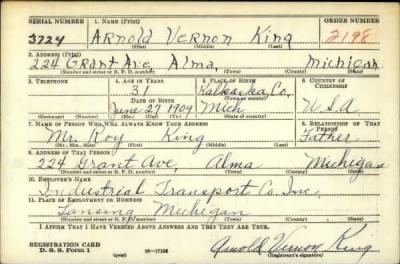 SERIAL NUMBER 1. NAME (Print) ORDER NUMBER
3724 Arnold Vernon King 2198
(First) (Middle) (Last)
2. ADDRESS (Print)
224 Grant Ave, Alma, Michigan
(Number and street or R. F. D. number) (Town) (County) (State)
3. TELEPHONE 4. AGE IN YEARS 5. PLACE OF BIRTH 6. COUNTRY OF CITIZENSHIP
31 Kalkaska Co.
DATE OF BIRTH (Town or county)
June 27 1909 Mich U.S.A
(Exchange) (Number) (Mo.) (Day) (Yr.) (State or country)
7. NAME OF PERSON WHO WILL ALWAYS KNOW YOUR ADDRESS 8. RELATIONSHIP OF THAT PERSON
Mr. Roy King Father
(Mr., Mrs., Miss) (First) (Middle) (Last)
9. ADDRESS OF THAT PERSON
224 Grant Ave, Alma Michigan
(Number and street or R. F. D. number) (Town) (County) (State)
10. EMPLOYER'S NAME
Industrial Transport Co. Inc.
11. PLACE OF EMPLOYMENT OR BUSINESS
Lansing Michigan
(Number and street or R. F. D. number) (Town) (County) (State)
I AFFIRM THAT I HAVE VERIFIED ABOVE ANSWERS AND THEY ARE TRUE.
REGISTRATION CARD
D. S. S. Form 1 (over) 16—17105 Arnold Vernon King
(Registrant's signature)